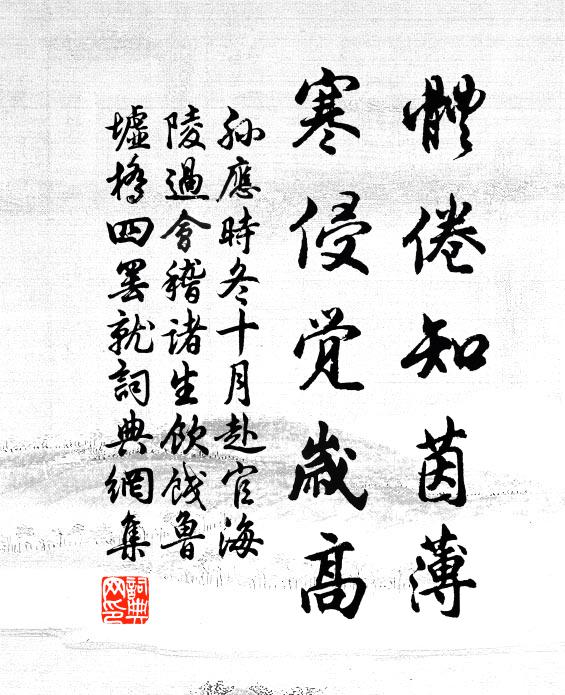 體倦知茵薄
寒侵覺歲高
孫應時冬十月赴官海
陵過會稽諸生飲餞魯
墟橋四罢就詞典網集
詞典
网印